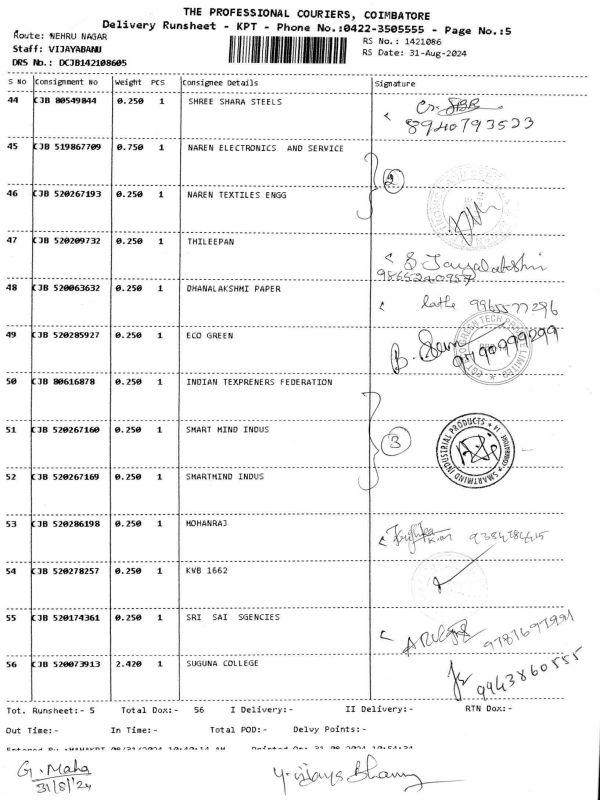 THE PROFESSIONAL COURIERS, COIMBATORE
Delivery Runsheet - KPT - Phone No.:0422-3505555 - Page No.:5
Route: NEHRU NAGAR
RS No.: 1421086
Staff: VIJAYABANU
RS Date: 31-Aug-2024
DRS No.: DCJB142108605
S No Consignment No Weight PCS Consignee Details Signature
44 CJB 80549844 0.250 1 SHREE SHARA STEELS
8940793523
45 CJB 519867709 0.750 1 NAREN ELECTRONICS AND SERVICE
2
46 CJB 520267193 0.250 1 NAREN TEXTILES ENGG
47 CJB 520209732 0.250 1 THILEEPAN
S Jayalakshmi
9865240957
48 CJB 520063632 0.250 1 DHANALAKSHMI PAPER
latha 9965577296
49 CJB 520285927 0.250 1 ECO GREEN
50 CJB 80616878 0.250 1 INDIAN TEXPRENERS FEDERATION
51 CJB 520267160 0.250 1 SMART MIND INDUS
3
SMARTMIND INDUSTRIAL PRODUCTS
52 CJB 520267169 0.250 1 SMARTMIND INDUS
53 CJB 520286198 0.250 1 MOHANRAJ
54 CJB 520278257 0.250 1 KVB 1662
55 CJB 520174361 0.250 1 SRI SAI SGENCIES
56 CJB 520073913 2.420 1 SUGUNA COLLEGE
9943860555
Tot. Runsheet:- 5 Total Dox:- 56 I Delivery:- II Delivery:- RTN Dox:-
Out Time:- In Time:- Total POD:- Delvy Points:-
G. Maha
31/8/24